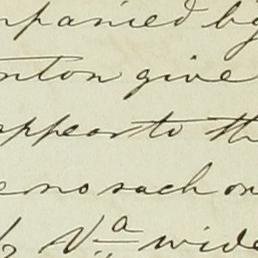 mpanied by
nton give
appears to th
e no such on
Va wide